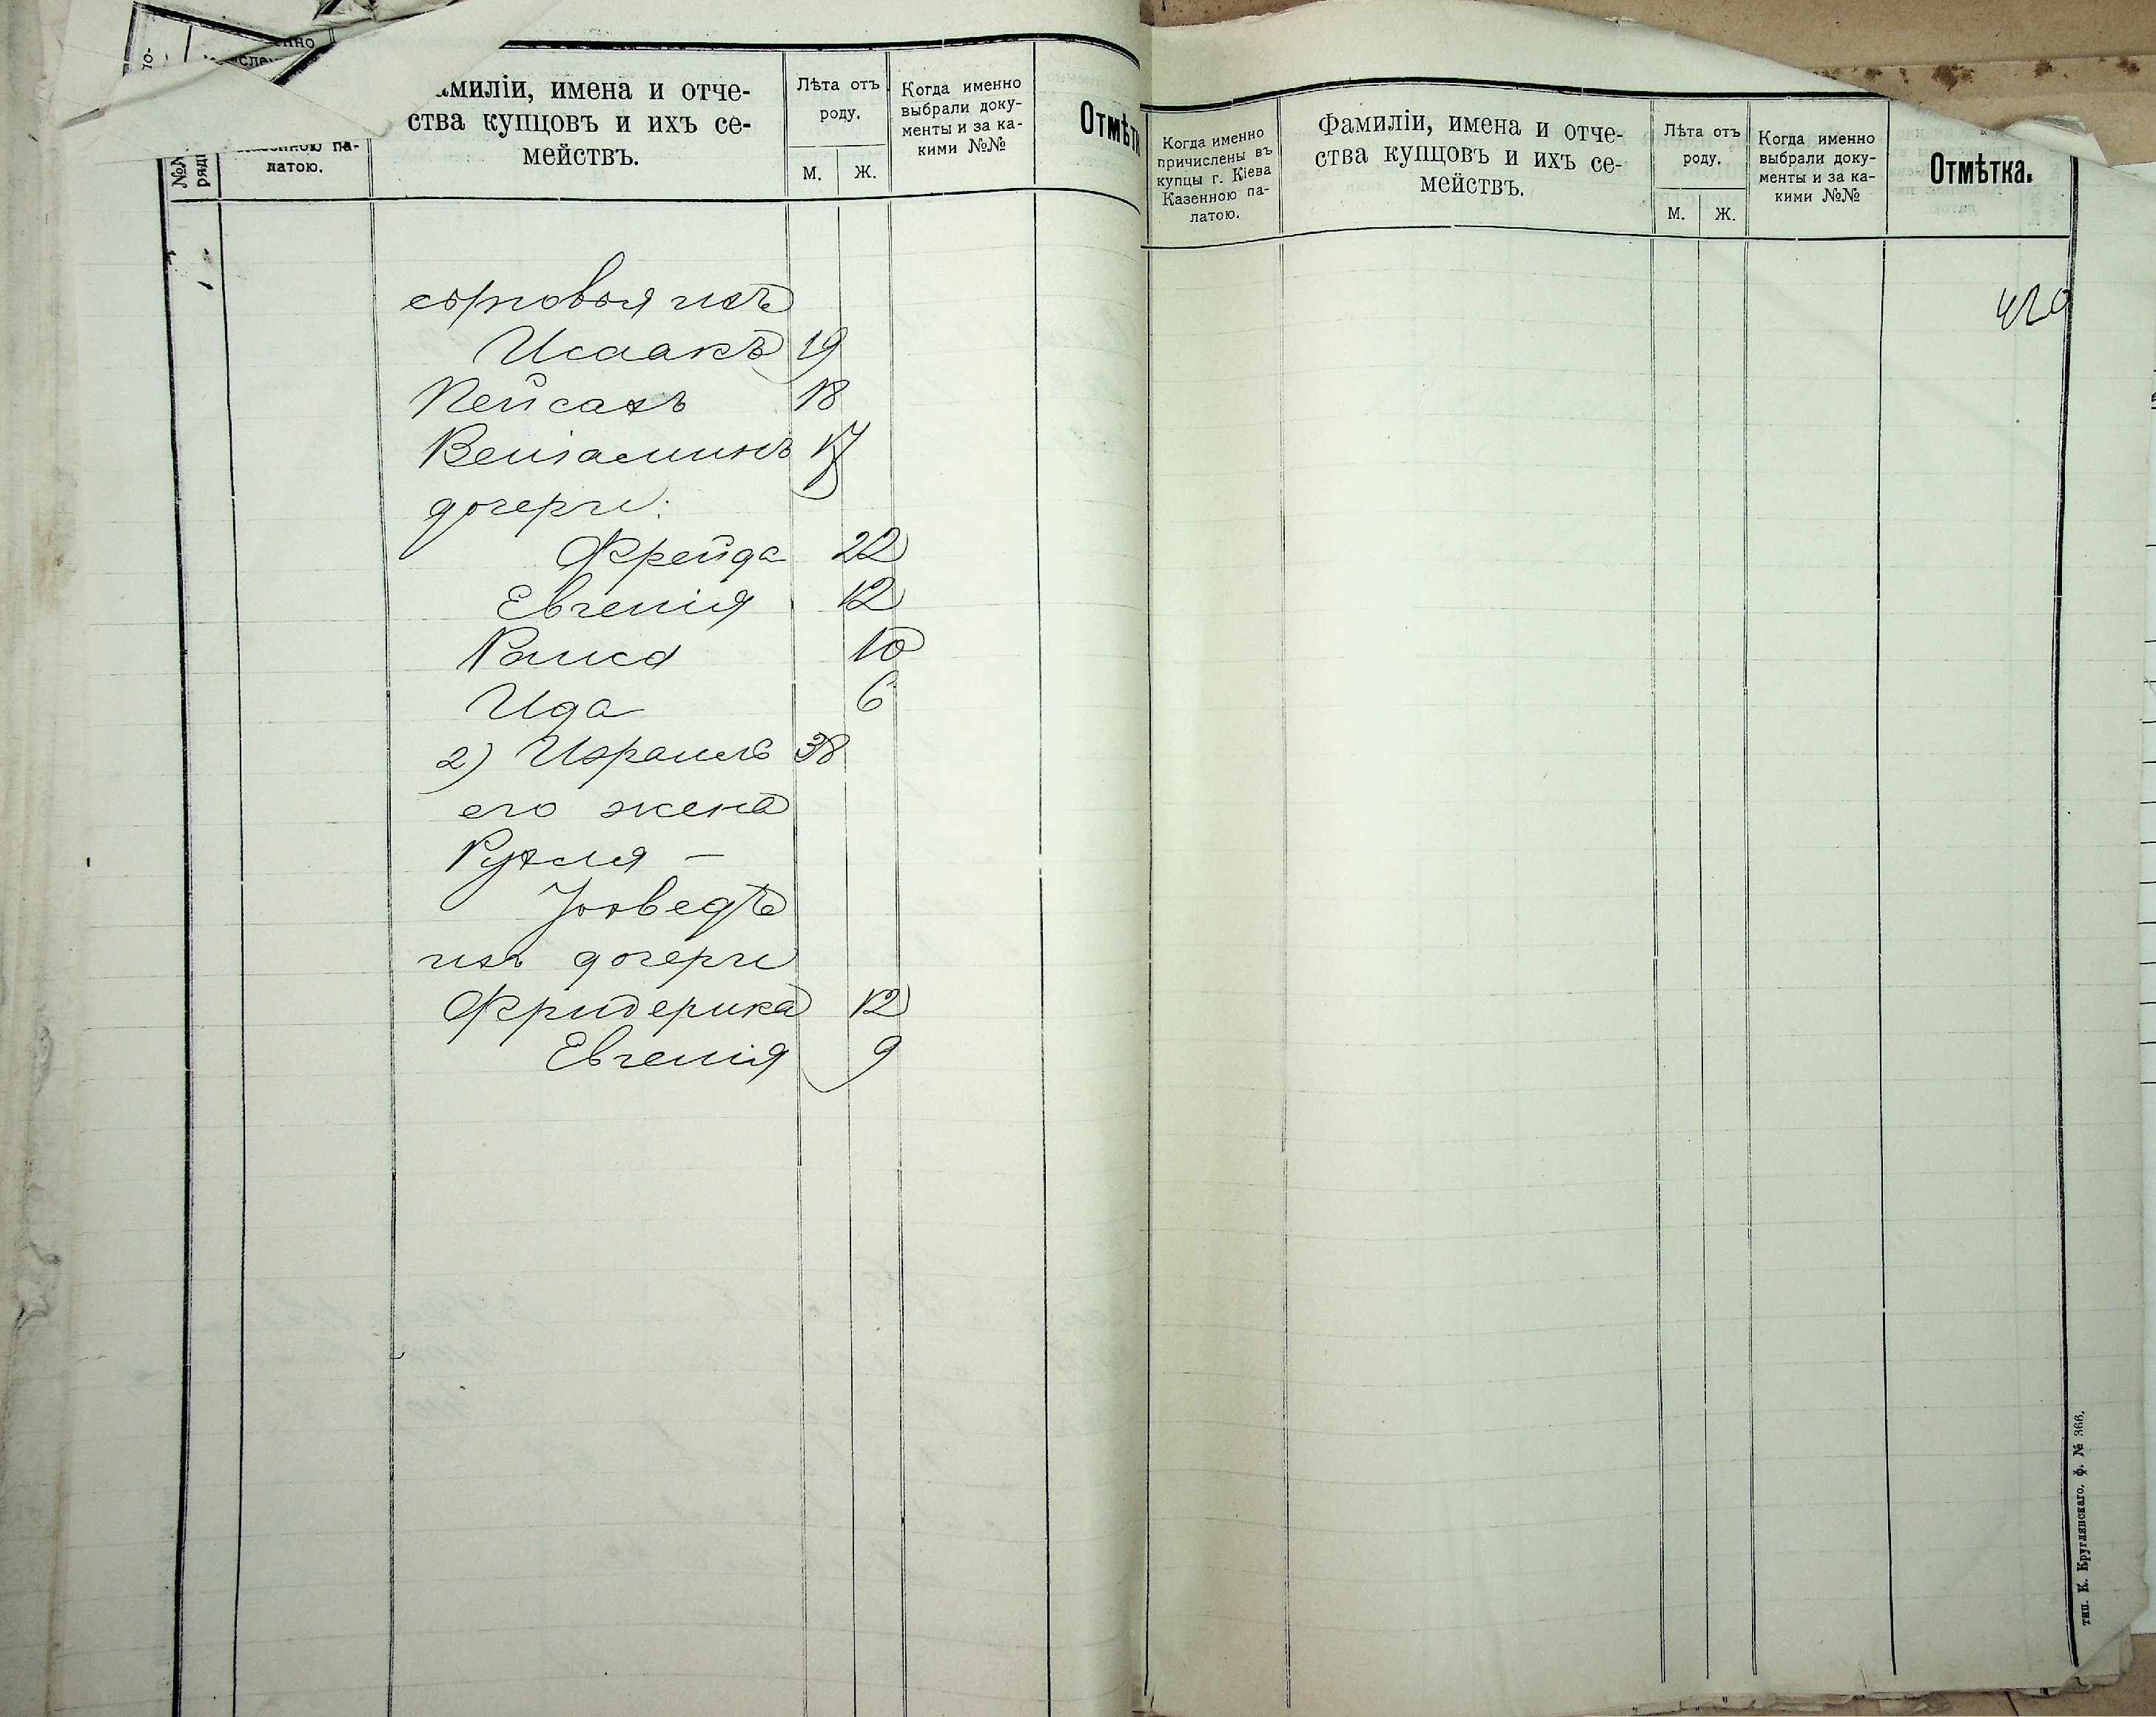 амиліи, имена и отче-
ства купцовъ и ихъ се-
мействъ.
Лѣта отъ
роду.
М. Ж.
Когда именно
выбрали доку-
менты и за ка-
кими №№
Отмѣтк
па-
латою.
сыновья ихъ
Исаакъ 19
Пейсахъ 18
Веніаминъ 17
дочери:
Фрейда 22
Евгенія 12
Раиса 10
Ида 6
2) Израиль 38
его жена
Рухля —
ихъ дочери
Фридерика 12
Евгенія 9
Когда именно
причислены въ
купцы г. Кіева
Казенною па-
латою.
Фамиліи, имена и отче-
ства купцовъ и ихъ се-
мействъ.
Лѣта отъ
роду.
М. Ж.
Когда именно
выбрали доку-
менты и за ка-
кими №№
Отмѣтка.
тип. К. Круглянскаго. ф. № 366.